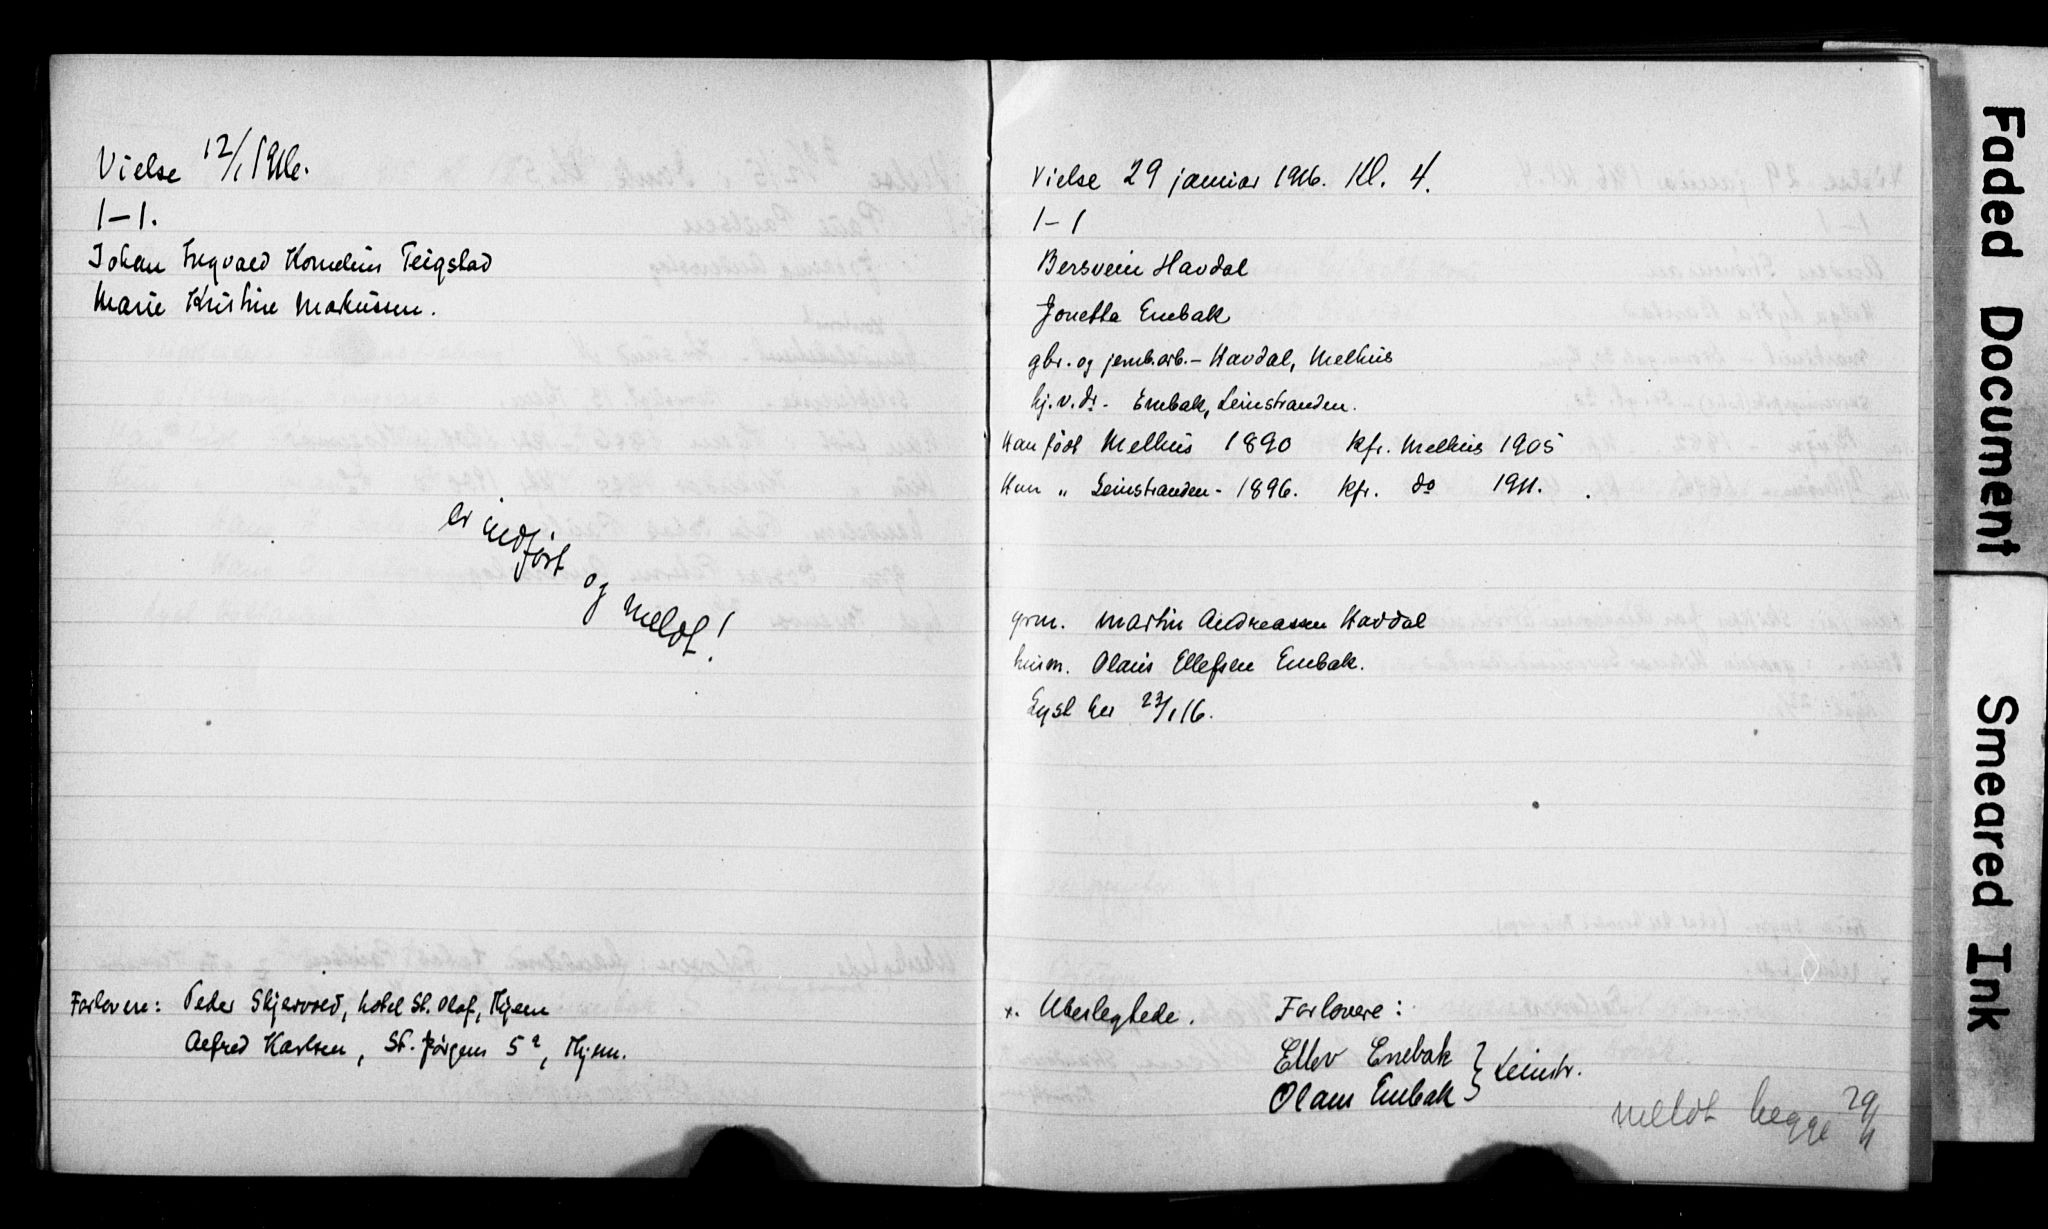 Vielse 12/1 1916.
1-1.
Johan Ingvald Kornelius Teigstad
Marie Kristine Markussen.
er indført og meldt!
Forlovere: Peder Skjervold, hotel St. Olaf, Thjem
Alfred Karlsen, St. Jörgens 5², Thjem.
Vielse 29 januar 1916. Kl. 4.
1-1
Bersvein Havdal
Jonetta Enebak
gbr. og jernb.arb. - Havdal, Melhus
hj.v. dr. Enebak, Leinstranden.
Han född Melhus 1890 kfr. Melhus 1905
Hun " Leinstranden - 1896. kfr. do 1911.
grm. Martin Andreassen Havdal
husm. Olaus Ellefsen Enebak.
Lyst her 23/1 16.
x. Ubeslegtede. Forlovere:
Ellev Enebak
Olaus Enebak } Leinstr.
meldt begge 29/1
Faded Document
Smeared Ink